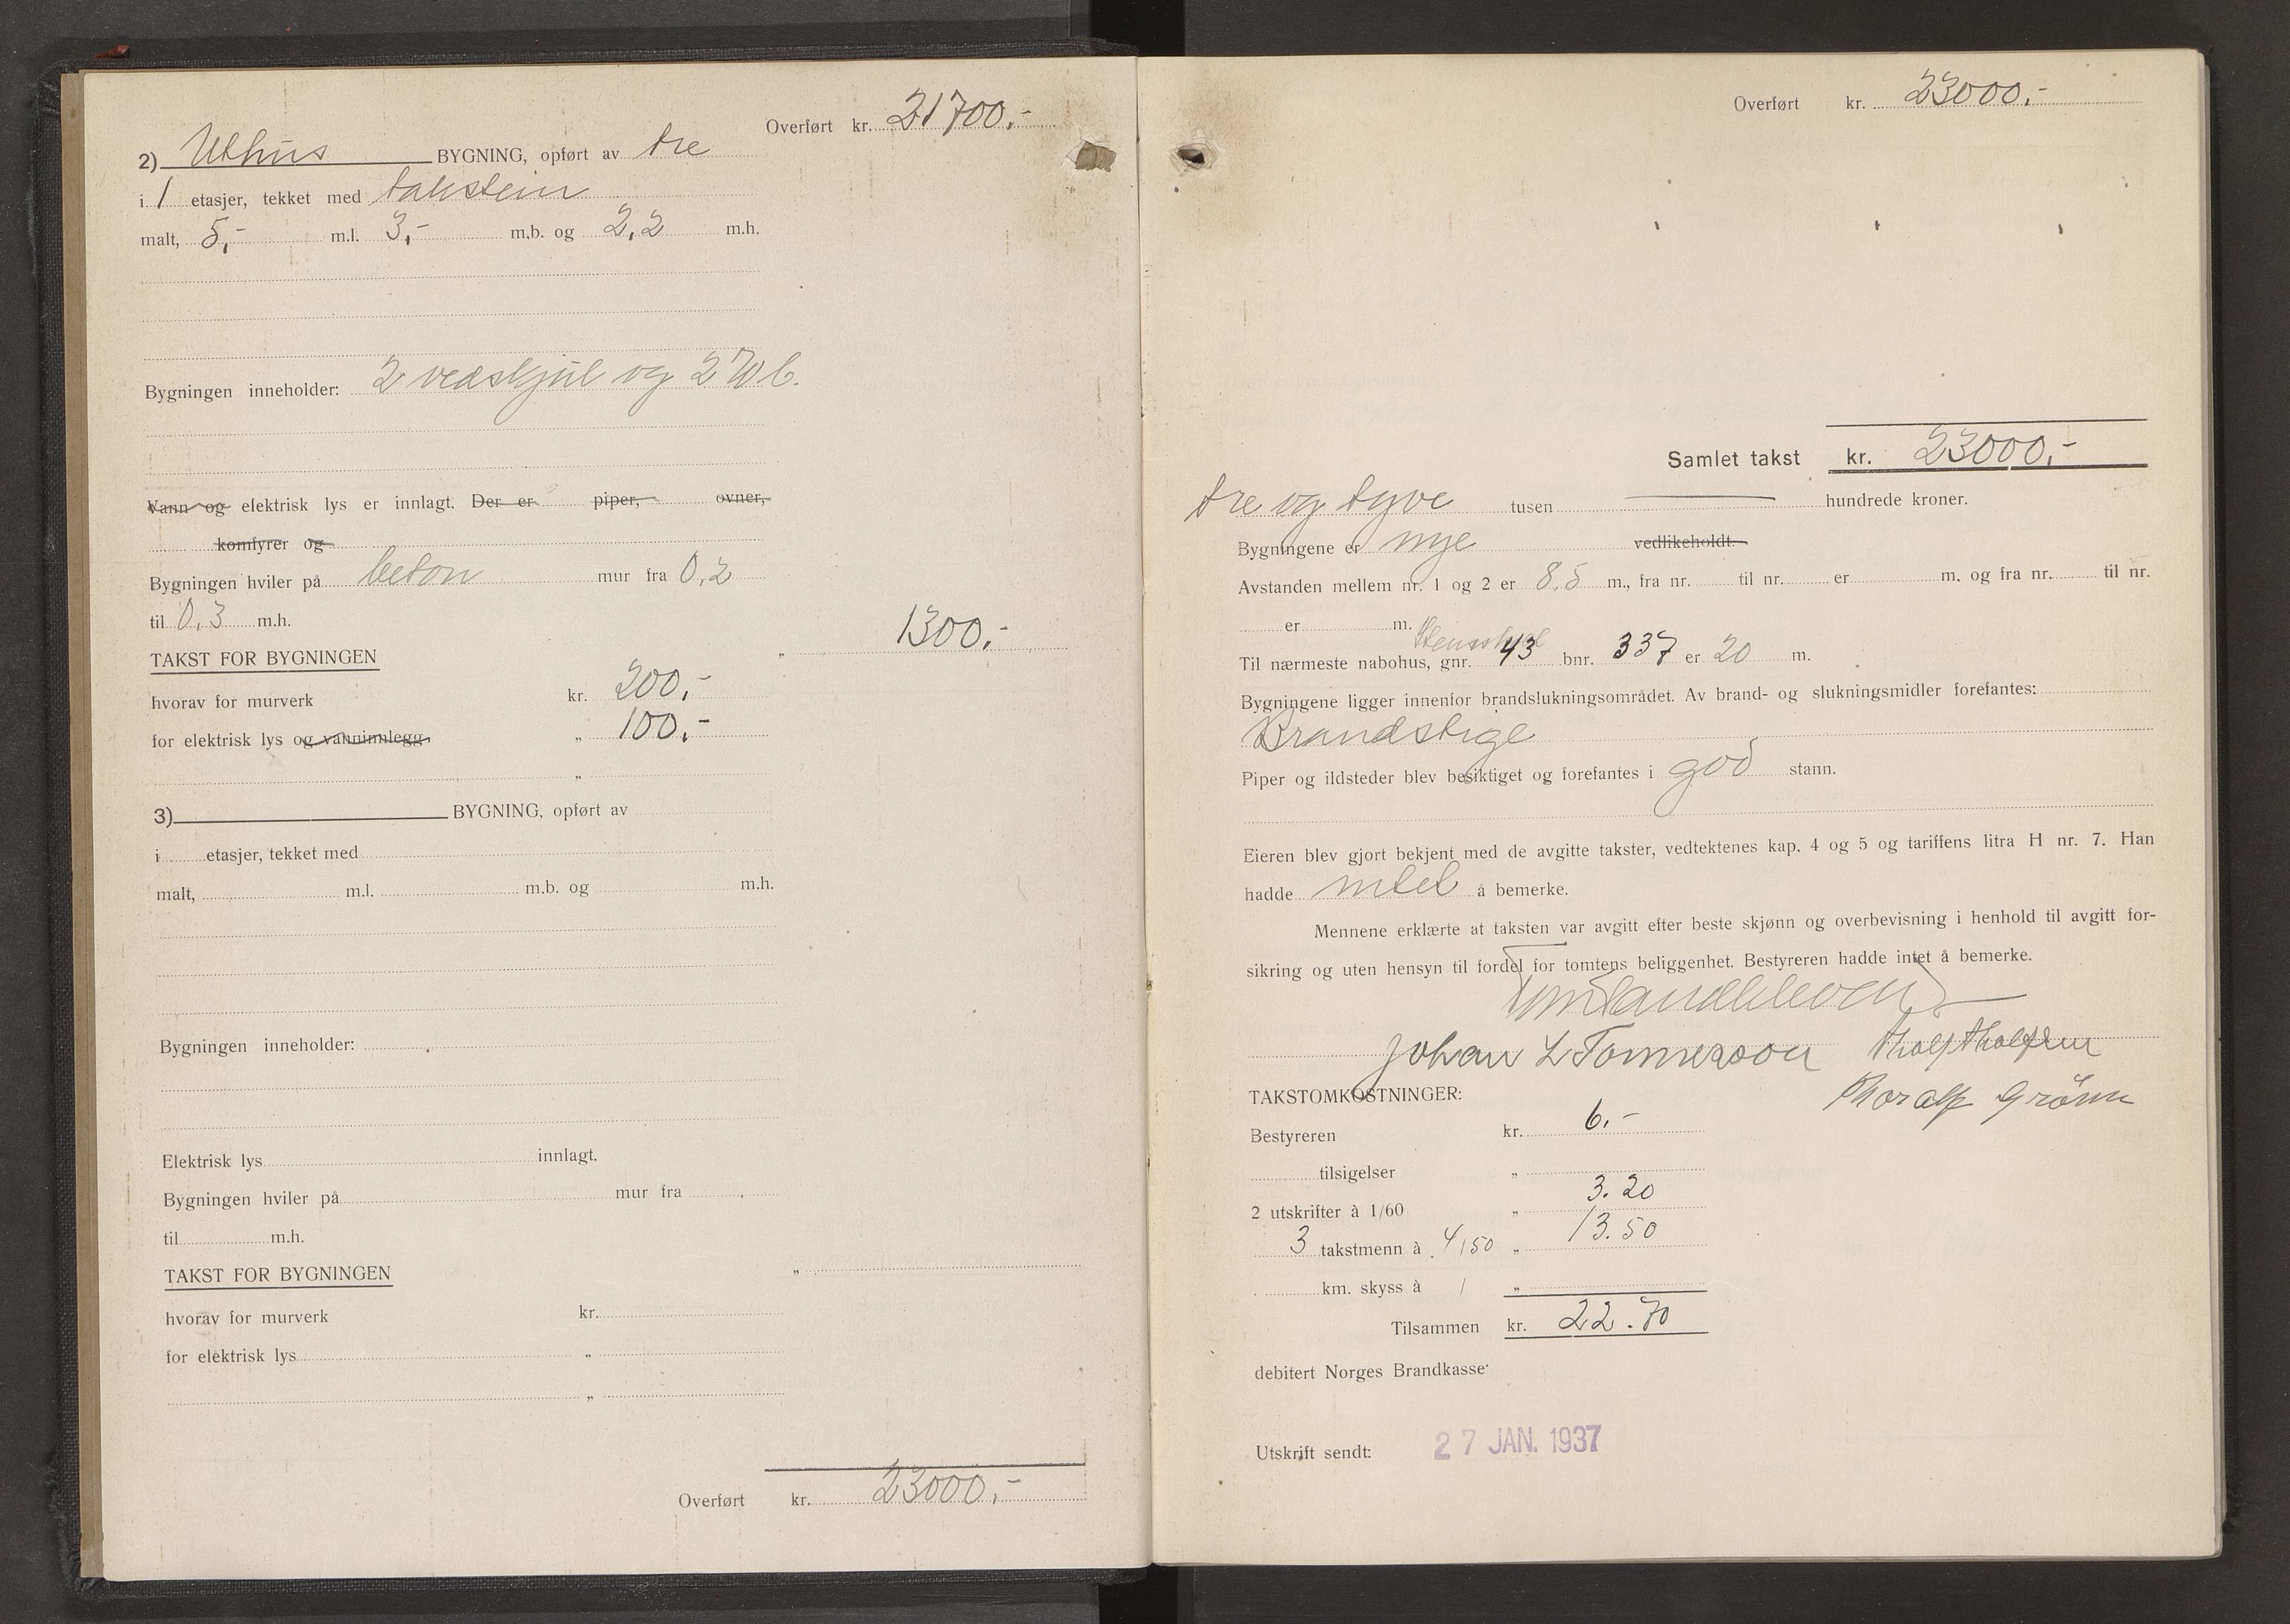 Overført kr. 21700.-
2) Uthus BYGNING, opført av tre
i 1 etasjer, tekket med takstein
malt, 5,- m.l. 3,- m.b. og 2,2 m.h.
Bygningen inneholder: 2 vedskjul og 2 W.c.
Vann og elektrisk lys er innlagt. Der er piper, ovner,
komfyrer og
Bygningen hviler på beton mur fra 0,2
til 0,3 m.h.
TAKST FOR BYGNINGEN „ 1300.-
hvorav for murverk kr. 200,-
for elektrisk lys og vanninnlegg „ 100,-
„
3) BYGNING, opført av
i etasjer, tekket med
malt, m.l. m.b. og m.h.
Bygningen inneholder:
Elektrisk lys innlagt.
Bygningen hviler på mur fra
til m.h.
TAKST FOR BYGNINGEN „
hvorav for murverk kr.
for elektrisk lys „
„
Overført kr. 23000,-
Overført kr. 23000,-
Samlet takst kr. 23000,-
tre og tyve tusen — hundrede kroner.
Bygningene er nye vedlikeholdt.
Avstanden mellem nr. 1 og 2 er 8,5 m., fra nr. til nr. er m. og fra nr. til nr.
er m.
Til nærmeste nabohus, gnr. 43 bnr. 337 er 20 m.
Bygningene ligger innenfor brandslukningsområdet. Av brand- og slukningsmidler forefantes:
Brandstige
Piper og ildsteder blev besiktiget og forefantes i god stann.
Eieren blev gjort bekjent med de avgitte takster, vedtektenes kap. 4 og 5 og tariffens litra H nr. 7. Han
hadde intet å bemerke.
Mennene erklærte at taksten var avgitt efter beste skjønn og overbevisning i henhold til avgitt for-
sikring og uten hensyn til fordel for tomtens beliggenhet. Bestyreren hadde intet å bemerke.
Johan L Tønnesson
Thoralf Grønn
TAKSTOMKOSTNINGER:
Bestyreren kr. 6.-
tilsigelser „
2 utskrifter à 1/60 „ 3.20
3 takstmenn à 4/50 „ 13.50
km. skyss à / „
Tilsammen kr. 22.70
debitert Norges Brandkasse
Utskrift sendt: 27 JAN. 1937